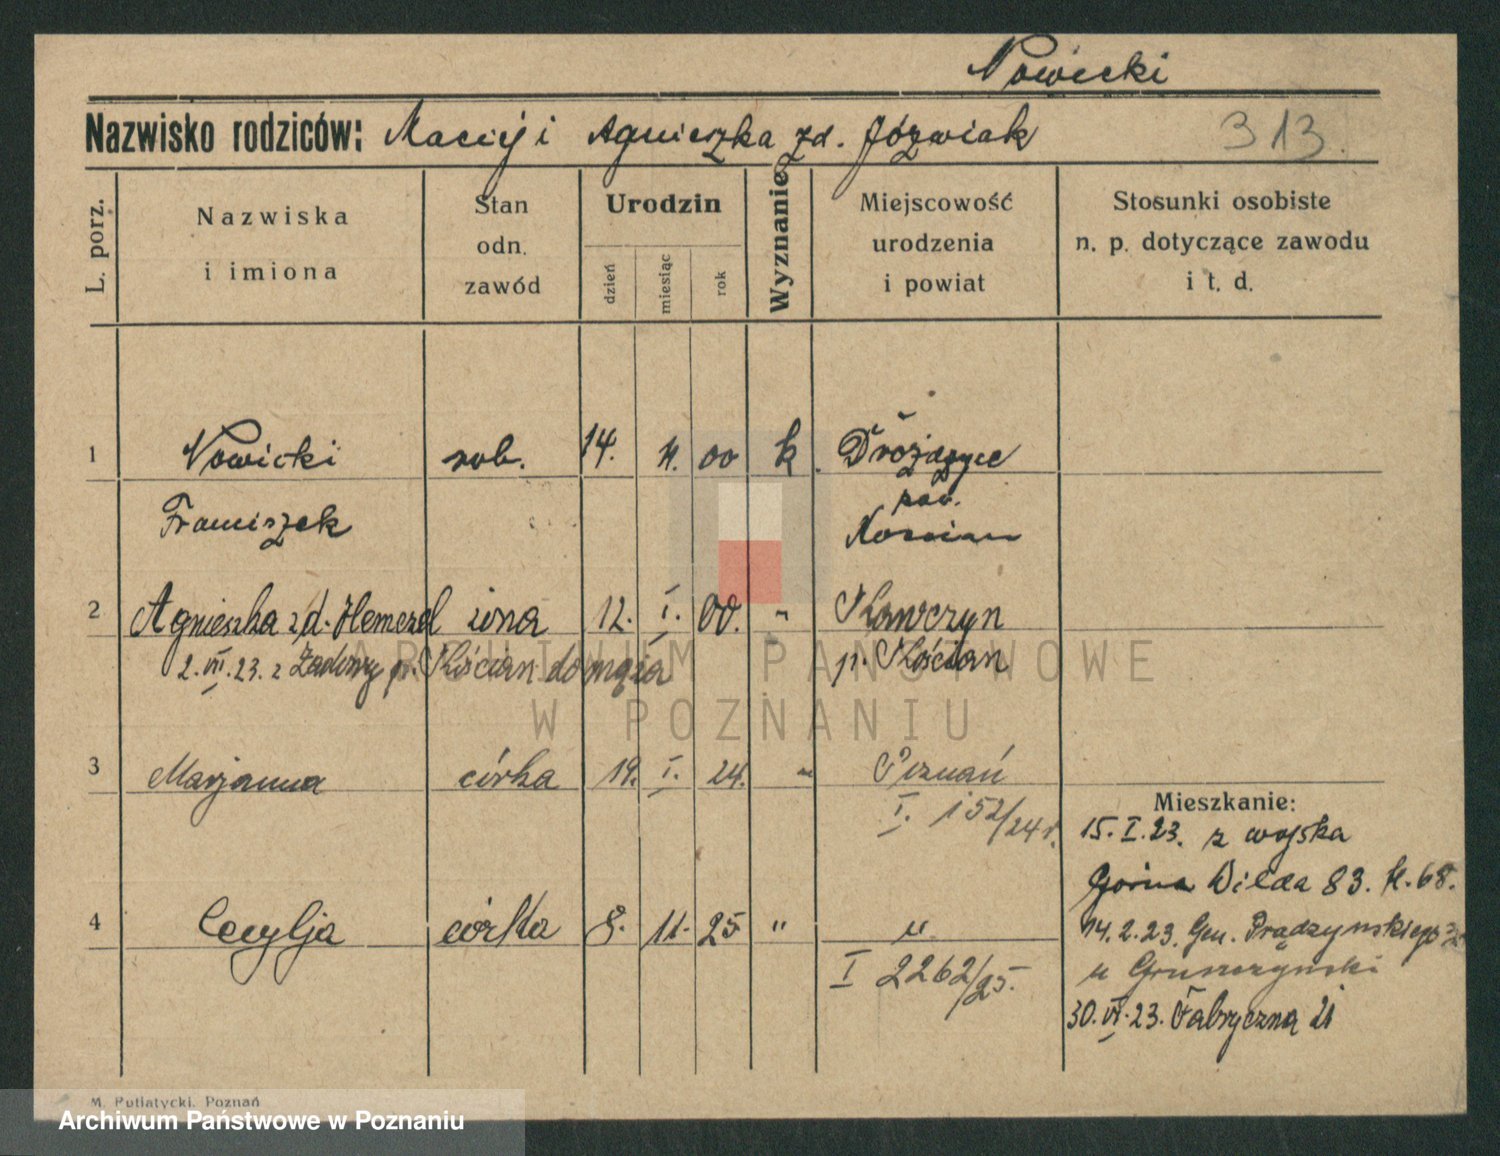 Nowicki
Nazwisko rodziców: Maciej i Agnieszka zd. Józwiak 313.
L. porz.
Nazwiska
i imiona
Stan
odn.
zawód
Urodzin
dzień
miesiąc
rok
Wyznanie
Miejscowość
urodzenia
i powiat
Stosunki osobiste
n. p. dotyczące zawodu
i t. d.
1 Nowicki rob. 14. 00 k
Franciszek pow.
2 Agnieszka zd. żona 12. I. 00. " Kawczyn
2. VII. 23. z p. Kościan p. Kościan
3 Marjanna córka 19. I. 24. " Poznań
I. 152/24r.
Mieszkanie:
15. I. 23. z wojska
Górna Wilda 83. 68.
4 Cecylja córka 8. 11. 25 " "
I 2262/25.
14. 2. 23. Gen. Prądzyńskiego
u Gruszczyński
30. VI. 23. Fabryczna 21
M. Putiatycki, Poznań
ARCHIWUM PAŃSTWOWE
W POZNANIU
Archiwum Państwowe w Poznaniu